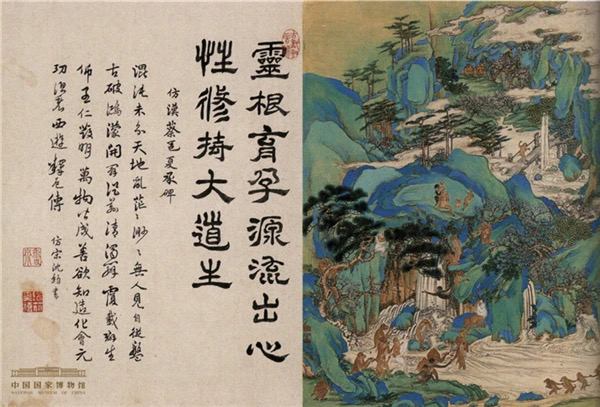 靈根育孕源流出心
性修持大道生
仿漢蔡邕夏承碑
混沌未分天地亂茫〻渺〻無人見自從盤
古破鴻濛開闢從茲清濁辨覆載群生
仰至仁發明萬物皆成善欲知造化會元
功須看西遊釋厄傳
仿宋沈書
中国国家博物馆
NATIONAL MUSEUM OF CHINA